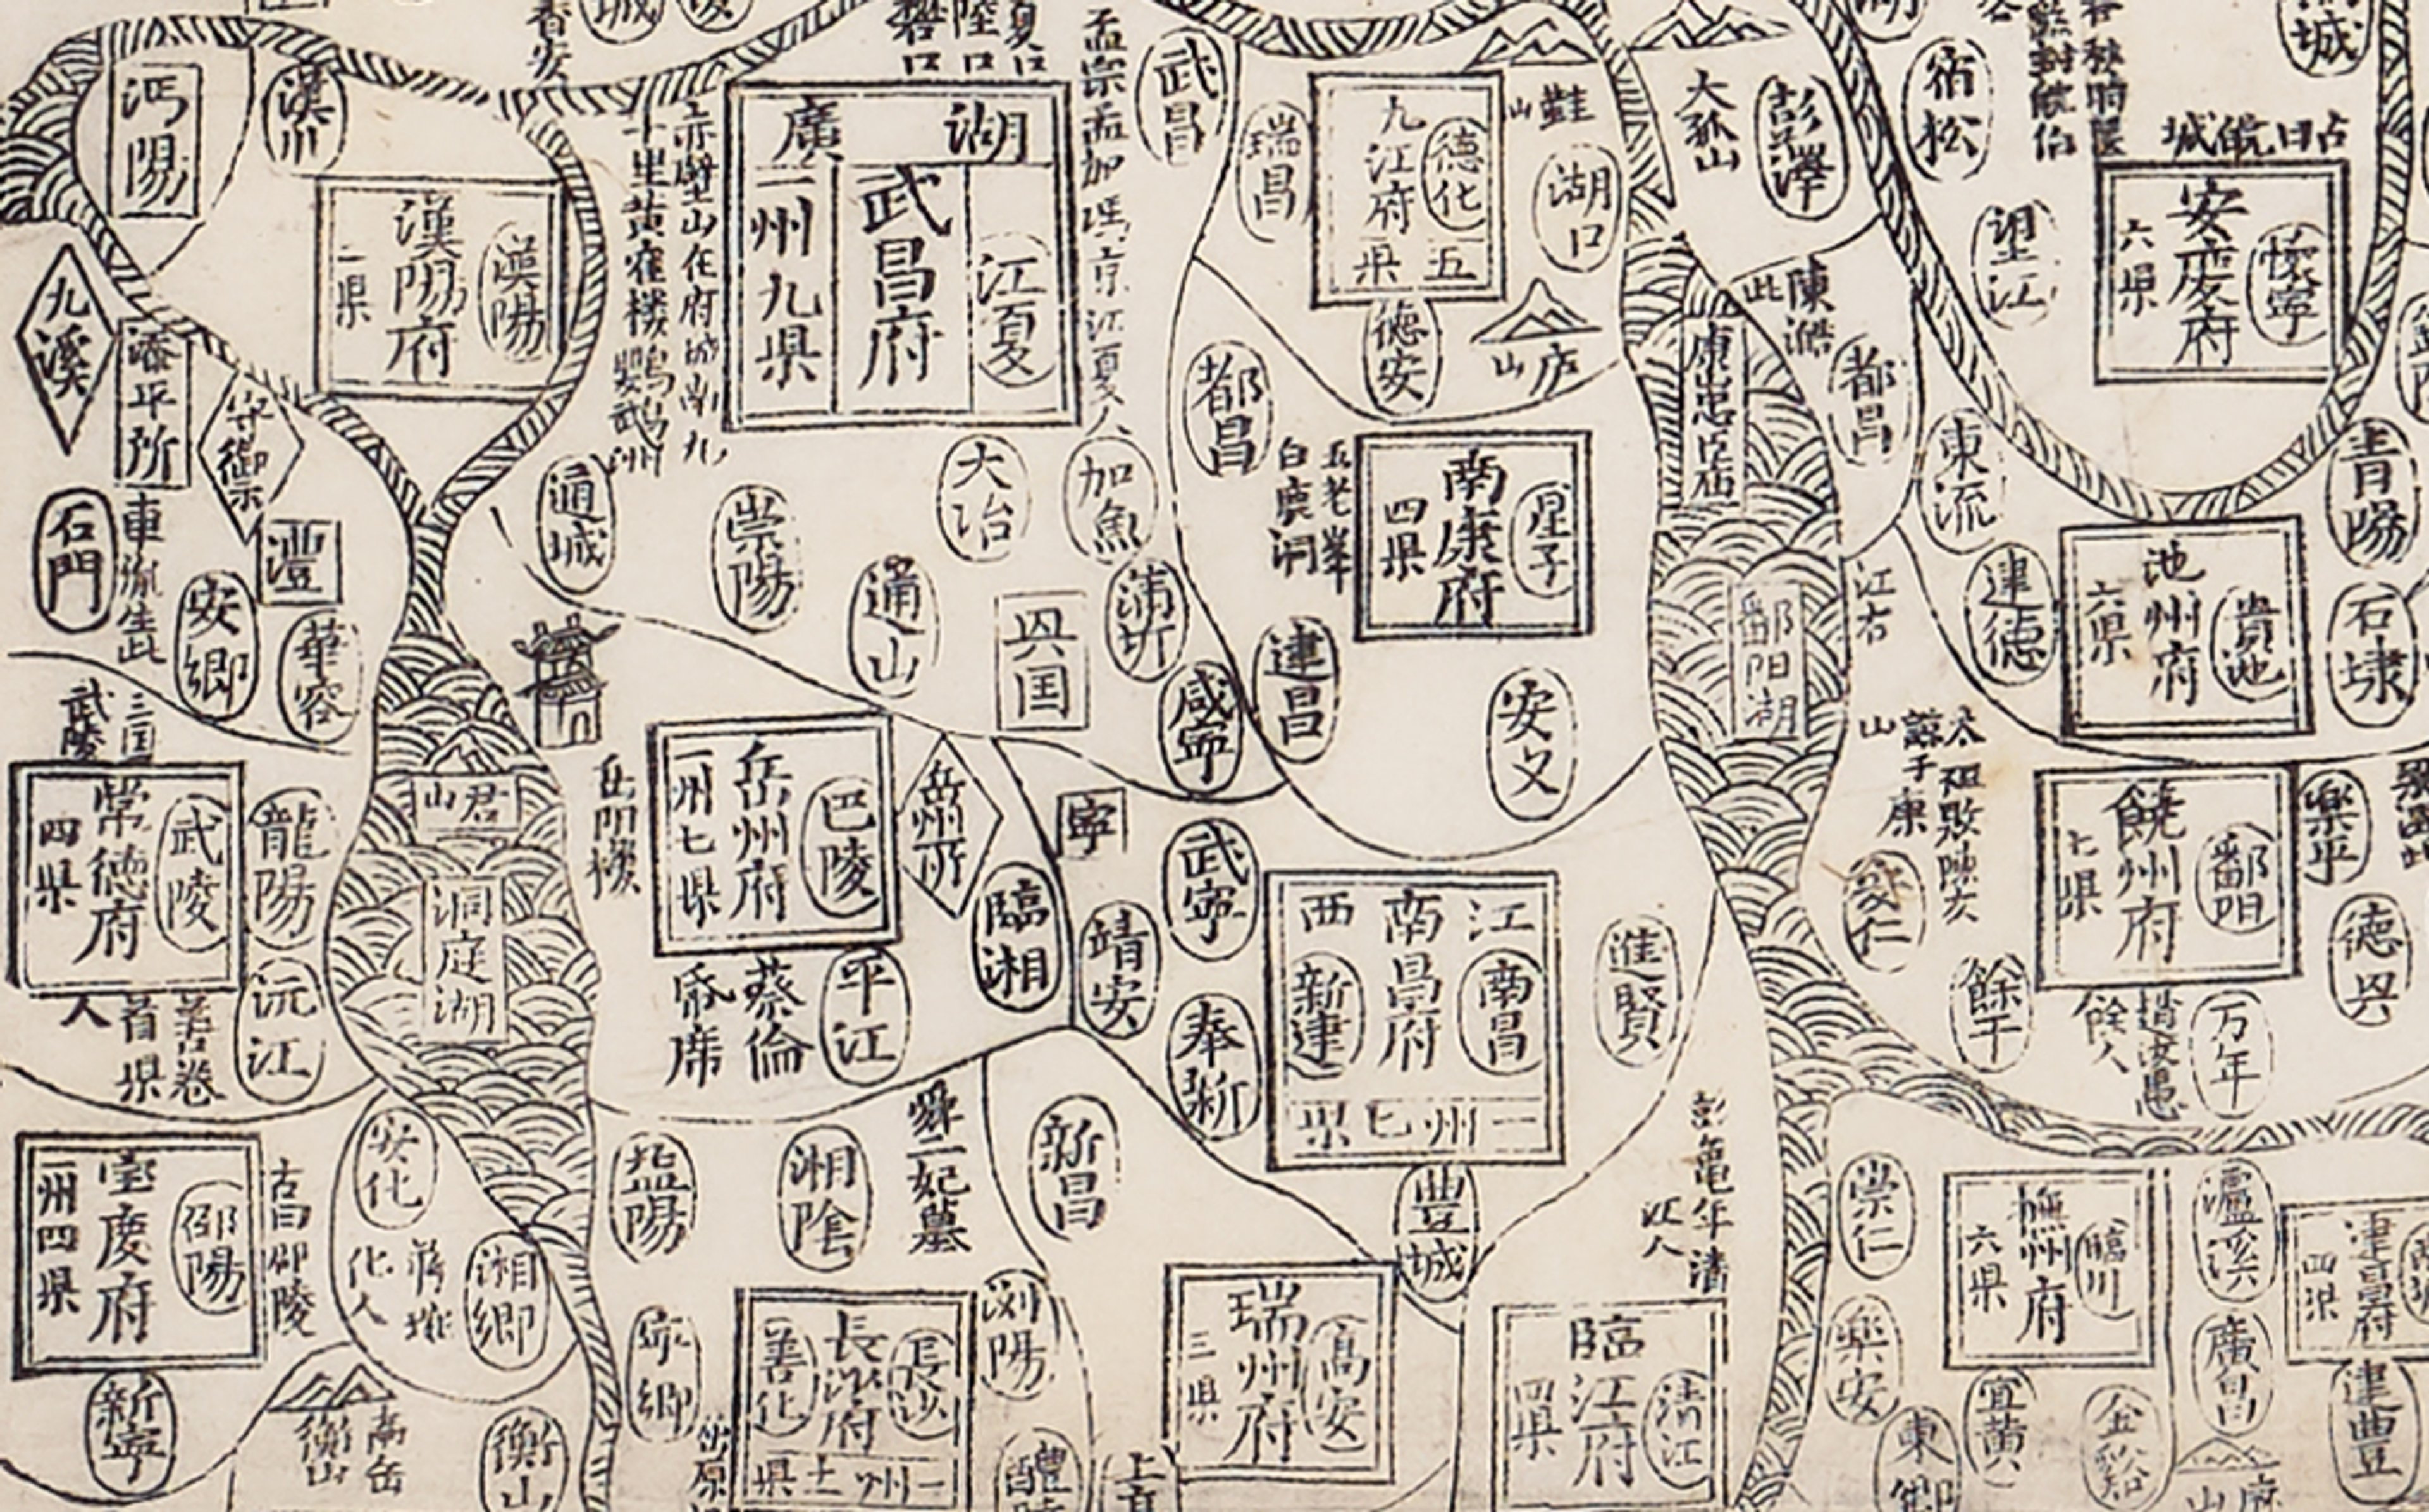 沔陽
漢川
漢陽府
漢陽
二県
九溪
守御所
石門
澧
安郷
華容
車胤生此
湖廣
武昌府
江夏
一州九県
赤壁山在府城南九
十里黄鶴楼鸚鵡洲
夏口
陸口
孟宗孟加
江夏人
武昌
通城
崇陽
通山
大冶
加魚
蒲圻
咸寧
興国
九江府
德化
五県
瑞昌
湖口
德安
大孤山
彭澤
庐山
南康府
星子
四県
都昌
五老峯
白鹿洞
建昌
安义
康忠臣庙
鄱阳湖
陳澔
此
都昌
江右
宿松
望江
古曰皖城
安慶府
懐寧
六県
東流
建德
池州府
貴池
六県
青陽
石埭
饒州府
鄱阳
七県
楽平
德兴
万年
餘干
安仁
太祖敗陳友
諒于康
山
餘人
常德府
武陵
四県
龍陽
沅江
善卷
人
君山
洞庭湖
岳阳樓
岳州府
巴陵
一州七県
岳州所
臨湘
平江
蔡倫
寧
武寧
靖安
奉新
江西
南昌府
南昌
新建
一州七県
進賢
豊城
宝慶府
邵陽
一州四県
古曰邵陵
新寧
安化
湘郷
蔣琬
化人
衡山
衡山
益陽
湘陰
舜二妃墓
寧郷
長沙府
長沙
善化
一州土県
浏陽
醴
新昌
瑞州府
高安
三県
上高
臨江府
清江
四県
彭亀年清
江人
崇仁
楽安
東郷
宜黄
金谿
撫州府
臨川
六県
瀘溪
廣昌
建昌府
四県
建豊